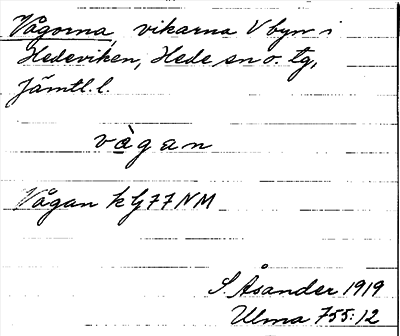 Vågorna, vikarna V byn i
Hedeviken, Hede sn o. tg,
Jämtl. l.
vàgan
Vågan k G77NM
S Åsander 1919
Ulma 755:12